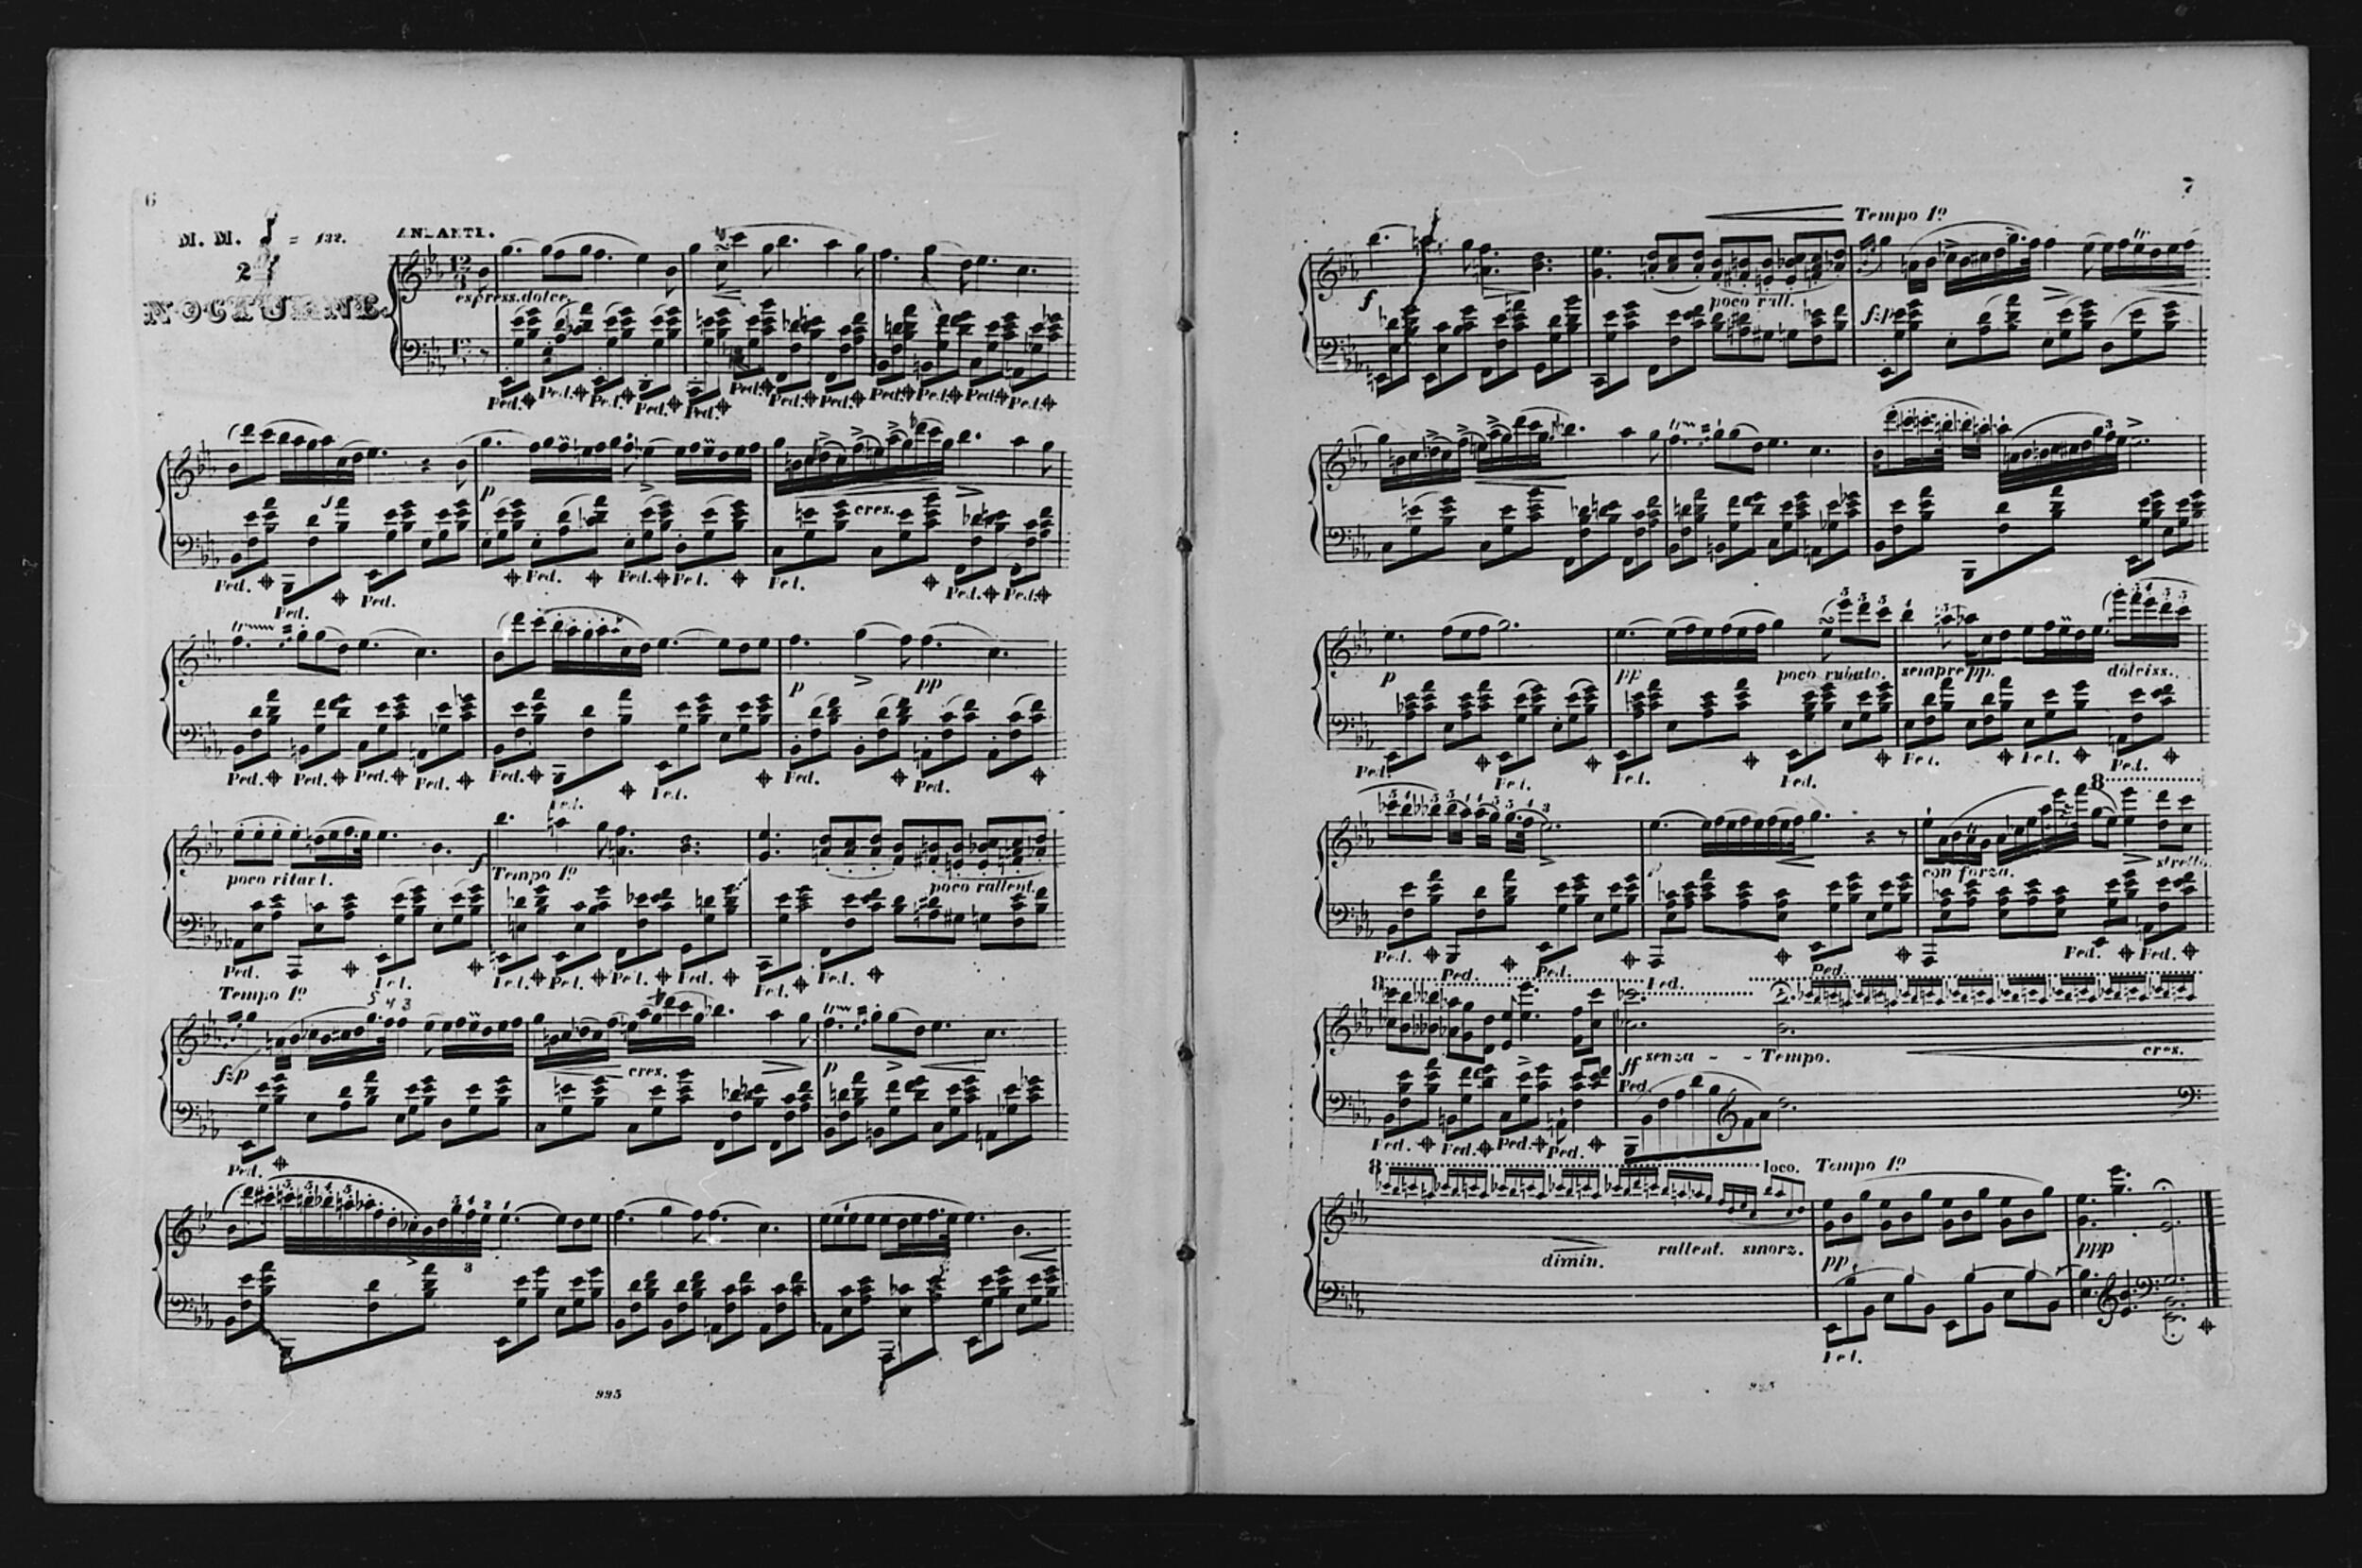 6
M. M. = 132. ANDANTE.
2
NOCTURNE.
express. dolce.
Ped. Ped. Ped. Ped. Ped. Ped. Ped. Ped. Ped. Ped. Ped. Ped.
p
cres.
Ped. Ped. Ped. Ped. Ped. Ped. Ped. Ped. Ped.
p pp
Ped. Ped. Ped. Ped. Ped. Ped. Ped. Ped. Ped.
poco ritard. f Tempo 1º poco rallent.
Ped. Ped. Ped. Ped. Ped. Ped. Ped. Ped.
Tempo 1º 5 4 3
fzp cres. p
Ped.
5 5 4 5 5 4 2 1
3
995
7
Tempo 1º
f poco rall. fzp
3
5 5 5 4 5 5 4 5 5
p pp poco rubato. sempre pp. dolciss.
Ped. Ped. Ped. Ped. Ped. Ped. Ped.
8
5 4 5 5 4 4 5 5 4 3
con forza. stretto.
Ped. Ped. Ped. Ped. Ped. Ped. Ped.
8
ff senza - - Tempo. cres.
Ped.
Ped. Ped. Ped. Ped.
8 loco. Tempo 1º
dimin. rallent. smorz. pp ppp
Ped.
995